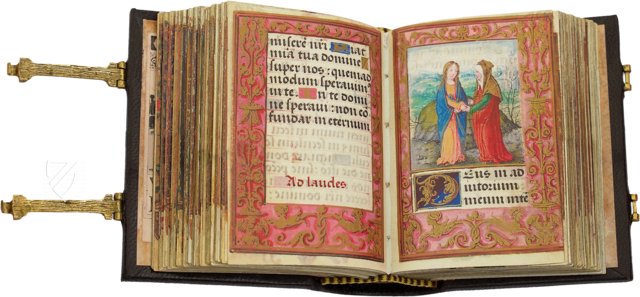 miserere nr̄i fiat
mīa tua domine
super nos: quemad
modum sperauim᷒
in te. In te domi
ne speraui: non cō
fundar in eternum
Ad laudes.
Deus in ad
iutorium
meum intē